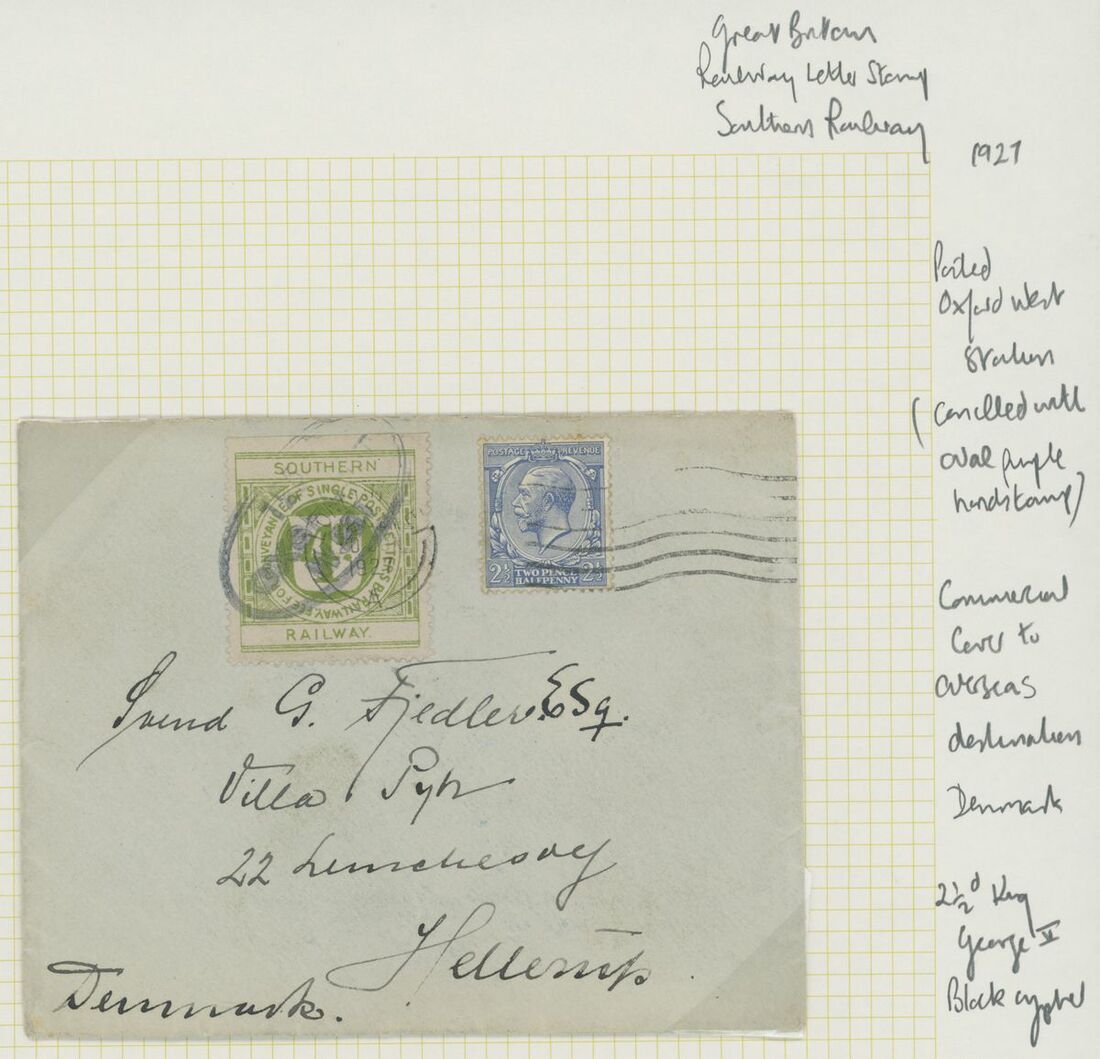 Great Britain
Railway Letter Stamp
Southern Railway
1927
Posted
Oxford West
Station
(Cancelled with
oval purple
handstamp)
Commercial
Cover to
overseas
destination
Denmark
2½d King
George V
Block cypher
SOUTHERN
FEE FOR CONVEYANCE OF SINGLE POST LETTERS BY RAILWAY
RAILWAY.
POSTAGE REVENUE
2½ TWO PENCE HALFPENNY 2½
Svend G. Fjedler. ESq.
Villa
22
Hellerup.
Denmark.